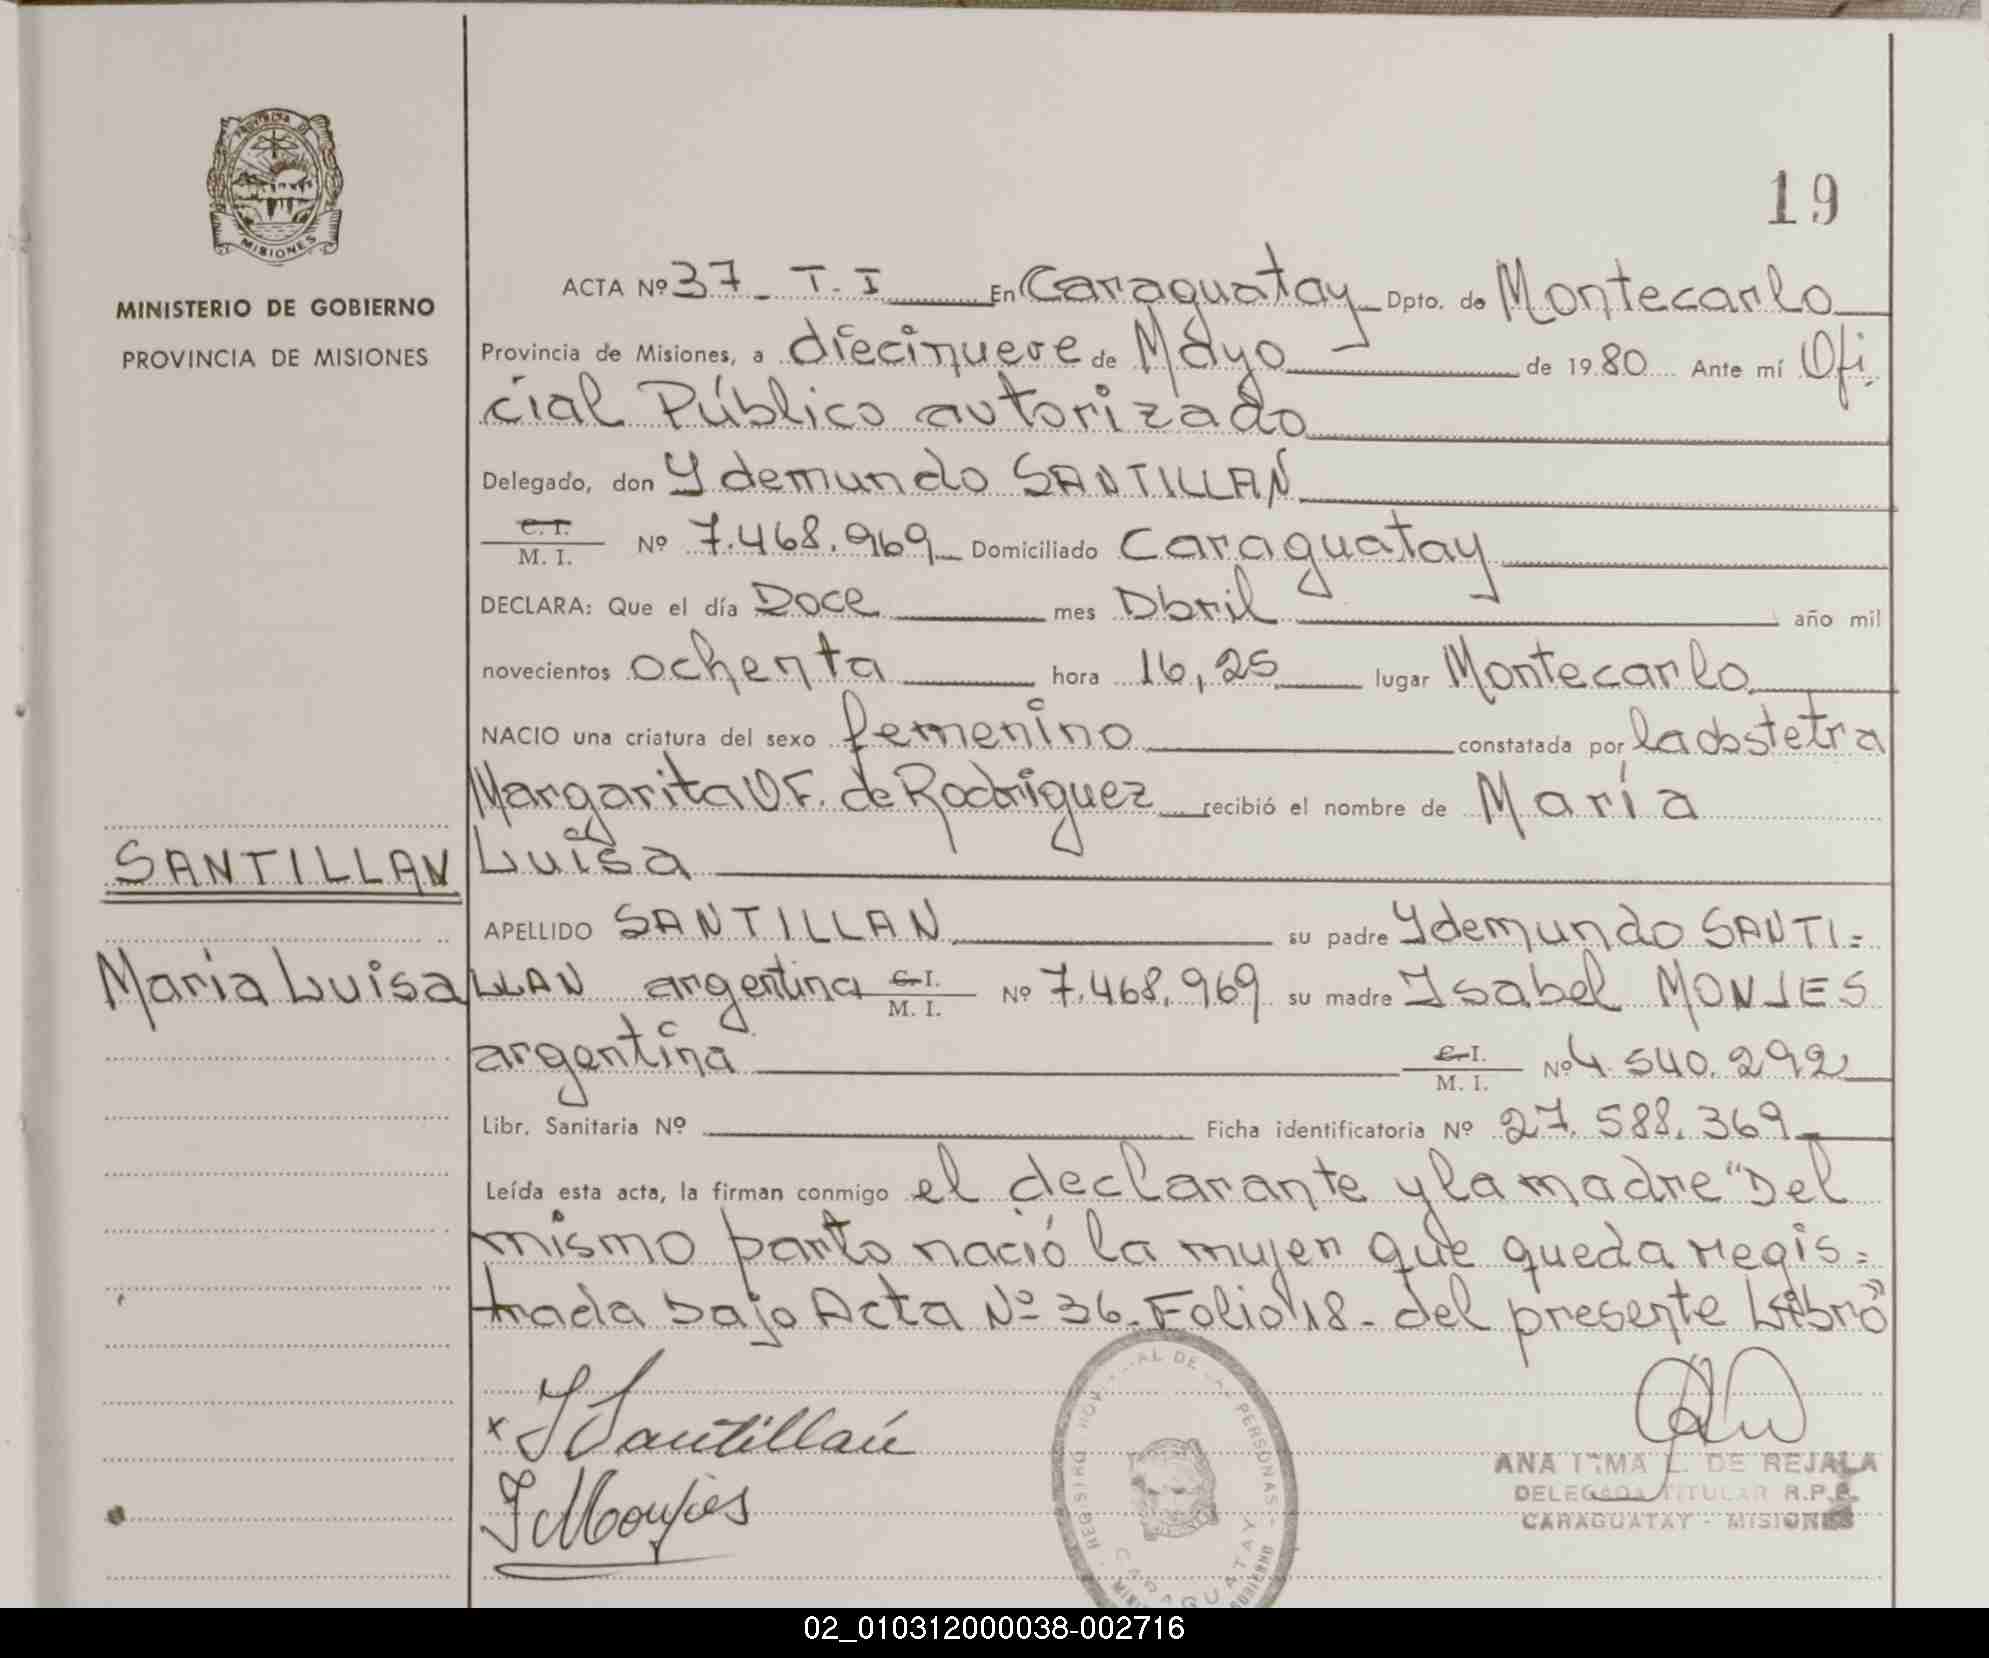 PROVINCIA DE
MISIONES
MINISTERIO DE GOBIERNO
PROVINCIA DE MISIONES
19
ACTA Nº 37 - T. I En Caraguatay Dpto. de Montecarlo
Provincia de Misiones, a diecinueve de Mayo de 1980 Ante mí Ofi
cial Público autorizado
Delegado, don Ydemundo SANTILLAN
C. I.
M. I. Nº 7.468.969 Domiciliado Caraguatay
DECLARA: Que el día Doce mes Abril año mil
novecientos ochenta hora 16,25 lugar Montecarlo
NACIO una criatura del sexo femenino constatada por la obstetra
Margarita O F. de Rodriguez recibió el nombre de María
Luisa
SANTILLAN
María Luisa
APELLIDO SANTILLAN su padre Ydemundo SANTI=
LLAN argentina C. I. M. I. Nº 7.468.969 su madre Isabel MONJES
argentina C. I. M. I. Nº 4.540.292
Libr. Sanitaria Nº Ficha identificatoria Nº 27.588.369
Leída esta acta, la firman conmigo el declarante y la madre "Del
mismo parto nació la mujer que queda regis=
trada bajo Acta Nº 36-Folio 18- del presente Libro"
x Y Santillán
I Monjes
REGISTRO DE PERSONAS
CARAGUATAY
ANA L. DE REJALA
DELEGADA TITULAR R.P.P.
CARAGUATAY - MISIONES
02_010312000038-002716